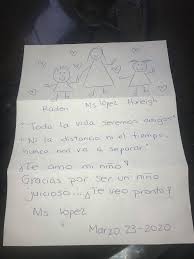 Raden Ms López Hurleigh
"Toda la vida seremos amigos"
"Ni la distancia ni el tiempo
nunca nos va a separar"
¡Te amo mi niño!
Gracias por ser un niño
juicioso... ¡Te veo pronto!
Ms López
Marzo, 23-2020